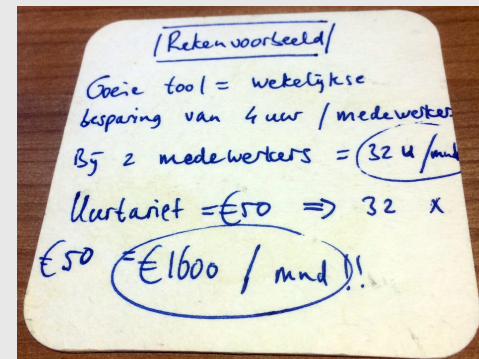 /Rekenvoorbeeld/
Goeie tool = wekelijkse
besparing van 4 uur / medewerker
Bij 2 medewerkers = 32 u/mnd
Uurtarief = €50 ⇒ 32 x
€50 = €1600 / mnd!!